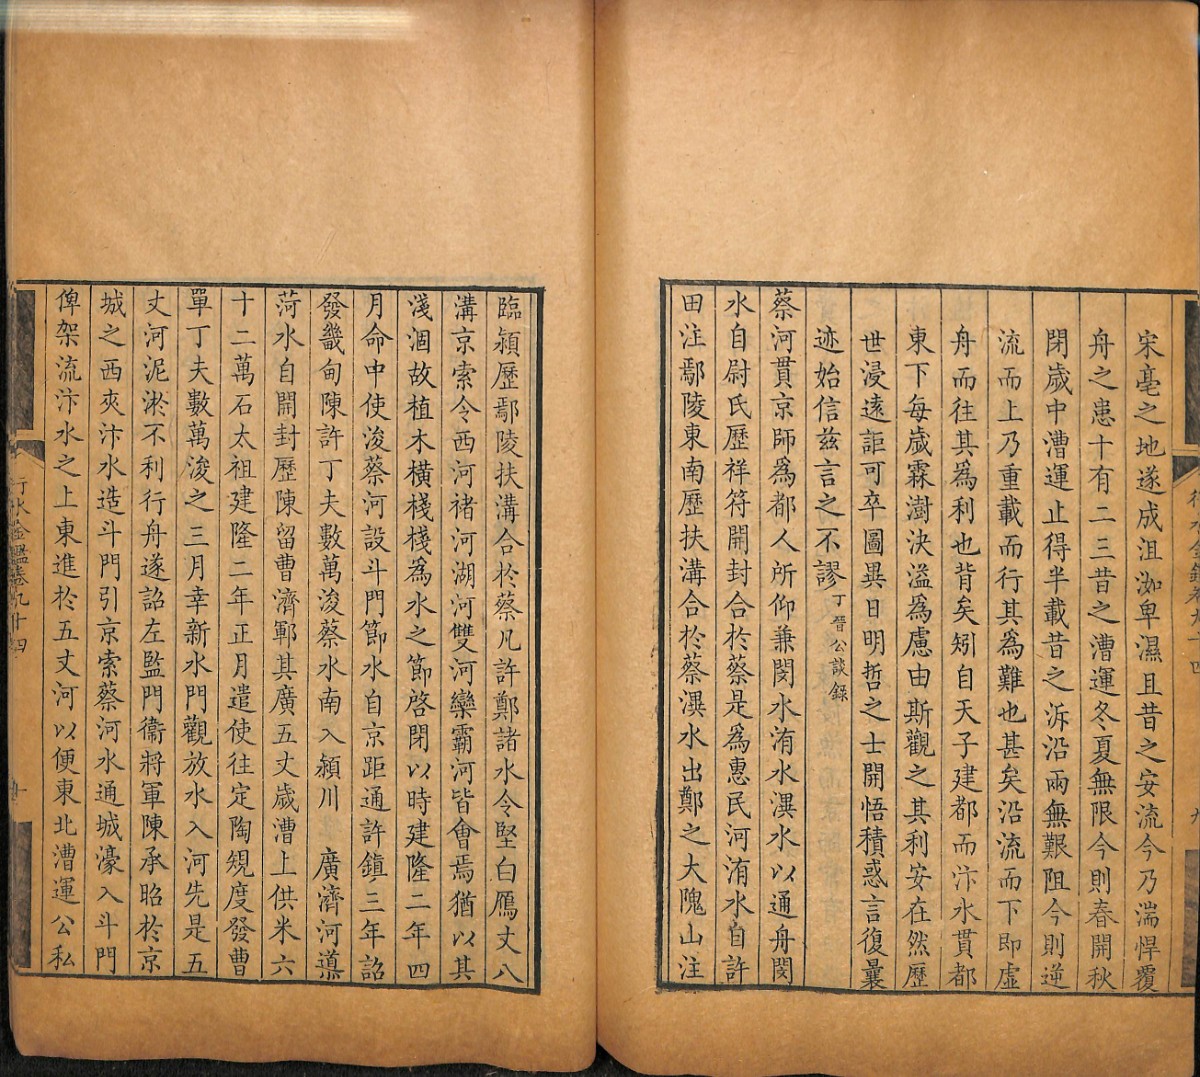 宋亳之地遂成沮洳卑濕且昔之安流今乃湍悍覆
舟之患十有二三昔之漕運冬夏無限今則春開秋
閉歲中漕運止得半載昔之泝沿兩無艱阻今則逆
流而上乃重載而行其為難也甚矣沿流而下即虛
舟而往其為利也背矣矧自天子建都而汴水貫都
東下每歲霖澍決溢為慮由斯觀之其利安在然歷
世浸遠詎可卒圖異日明哲之士開悟積惑言復曩
迹始信茲言之不謬丁晉公談錄
蔡河貫京師為都人所仰兼閔水洧水潩水以通舟閔
水自尉氏歷祥符開封合於蔡是為惠民河洧水自許
田注鄢陵東南歷扶溝合於蔡潩水出鄭之大隗山注
臨潁歷鄢陵扶溝合於蔡凡許鄭諸水令堅白鴈丈八
溝京索令西河褚河湖河雙河欒霸河皆會焉猶以其
淺涸故植木橫棧棧為水之節啓閉以時建隆二年四
月命中使浚蔡河設斗門節水自京距通許鎮三年詔
發畿甸陳許丁夫數萬浚蔡水南入潁川 廣濟河導
菏水自開封歷陳留曹濟鄆其廣五丈歲漕上供米六
十二萬石太祖建隆二年正月遣使往定陶規度發曹
單丁夫數萬浚之三月幸新水門觀放水入河先是五
丈河泥淤不利行舟遂詔左監門衞將軍陳承昭於京
城之西夾汴水造斗門引京索蔡河水通城濠入斗門
俾架流汴水之上東進於五丈河以便東北漕運公私
行水金鑑卷九十四